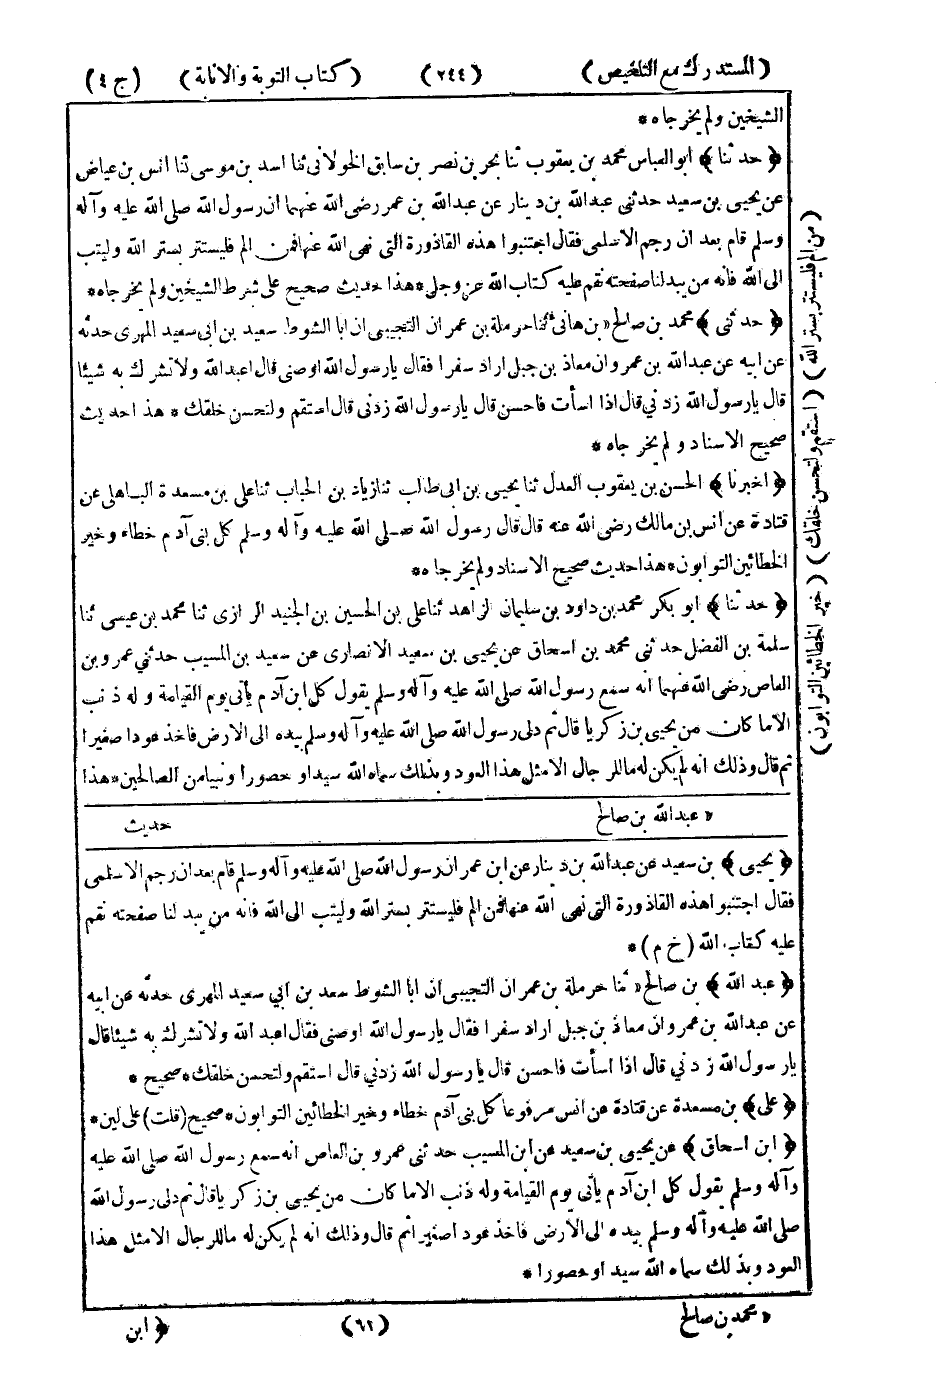 (المستدرك مع التلخيص) (٢٤٤) (كتاب التوبة والانابة) (ج ٤)
الشيخين ولم يخرجاه *
﴿ حدثنا ﴾ ابو العباس محمد بن يعقوب ثنا بحر بن نصر بن سابق الخولانى ثنا اسد بن موسى ثنا انس بن عياض
عن يحيى بن سعيد حدثنى عبدالله بن دينار عن عبدالله بن عمر رضى الله عنهما ان رسول الله صلى الله عليه وآله
وسلم قام بعد ان رجم الاسلمى فقال اجتنبوا هذه القاذورة التى نهى الله عنها فمن الم فليستتر بستر الله وليتب
الى الله فانه من يبد لنا صفحته نقم عليه كتاب الله عز وجل * هذا حديث صحيح على شرط الشيخين ولم يخرجاه *
﴿ حدثنى ﴾ محمد بن صالح « بن هانى ثنا حرملة بن عمران التجيبى ان ابا الشوط سعيد بن ابى سعيد المهرى حدثه
عن ابيه عن عبدالله بن عمرو ان معاذ بن جبل اراد سفرا فقال يارسول الله اوصنى قال اعبدالله ولاتشرك به شيئا
قال يارسول الله زدني قال اذا اسأت فاحسن قال يارسول الله زدنى قال استقم ولتحسن خلقك * هذا حديث
صحيح الاسناد ولم يخرجاه *
﴿ اخبرنا ﴾ الحسن بن يعقوب العدل ثنا يحيى بن ابى طالب ثنا زياد بن الحباب ثنا على بن مسعدة الباهلى عن
قتادة عن انس بن مالك رضى الله عنه قال قال رسول الله صلى الله عليه وآله وسلم كل بنى آدم خطاء وخير
الخطائين التوابون * هذا حديث صحيح الاسناد ولم يخرجاه *
﴿ حدثنا ﴾ ابو بكر محمد بن داود بن سليمان الزاهد ثنا على بن الحسين بن الجنيد الرازى ثنا محمد بن عيسى ثنا
سلمة بن الفضل حدثنى محمد بن اسحاق عن يحيى بن سعيد الانصارى عن سعيد بن المسيب حدثني عمرو بن
العاص رضى الله عنهما انه سمع رسول الله صلى الله عليه وآله وسلم يقول كل ابن آدم يأتى يوم القيامة وله ذنب
الا ما كان من يحيى بن زكريا قال ثم دلى رسول الله صلى الله عليه وآله وسلم بيده الى الارض فاخذ عودا صغيرا
ثم قال وذلك انه لم يكن له ما للرجال الا مثل هذا العود وبذلك سماه الله سيدا وحصورا ونبيا من الصالحين * هذا
« عبدالله بن صالح حديث
﴿ يحيى ﴾ بن سعيد عن عبدالله بن دينار عن ابن عمر ان رسول الله صلى الله عليه وآله وسلم قام بعد ان رجم الاسلمى
فقال اجتنبوا هذه القاذورة التى نهى الله عنها فمن الم فليستتر بستر الله وليتب الى الله فانه من يبد لنا صفحته نقم
عليه كتاب الله (خ م) *
﴿ عبد الله ﴾ بن صالح « ثنا حرملة بن عمران التجيبى ان ابا الشوط سعد بن ابي سعيد المهرى حدثه عن ابيه
عن عبدالله بن عمرو ان معاذ بن جبل اراد سفرا فقال يارسول الله اوصنى فقال اعبد الله ولاتشرك به شيئا قال
يارسول الله زدني قال اذا اسأت فاحسن قال يارسول الله زدني قال استقم ولتحسن خلقك * صحيح *
﴿ على ﴾ بن مسعدة عن قتادة عن انس مرفوعا كل بنى آدم خطاء وخير الخطائين التوابون * صحيح (قلت) على لين *
﴿ ابن اسحاق ﴾ عن يحيى بن سعيد عن ابن المسيب حدثنى عمرو بن العاص انه سمع رسول الله صلى الله عليه
وآله وسلم يقول كل ابن آدم يأتى يوم القيامة وله ذنب الا ما كان من يحيى بن زكريا قال ثم دلى رسول الله
صلى الله عليه وآله وسلم بيده الى الارض فاخذ عودا صغيرا ثم قال وذلك انه لم يكن له ما للرجال الا مثل هذا
العود وبذلك سماه الله سيدا وحصورا *
« محمد بن صالح (٦٢) ﴿ ابن
(من الم فليستتر بستر الله) (استقم ولتحسن خلقك) (خير الخطائين التوابون)